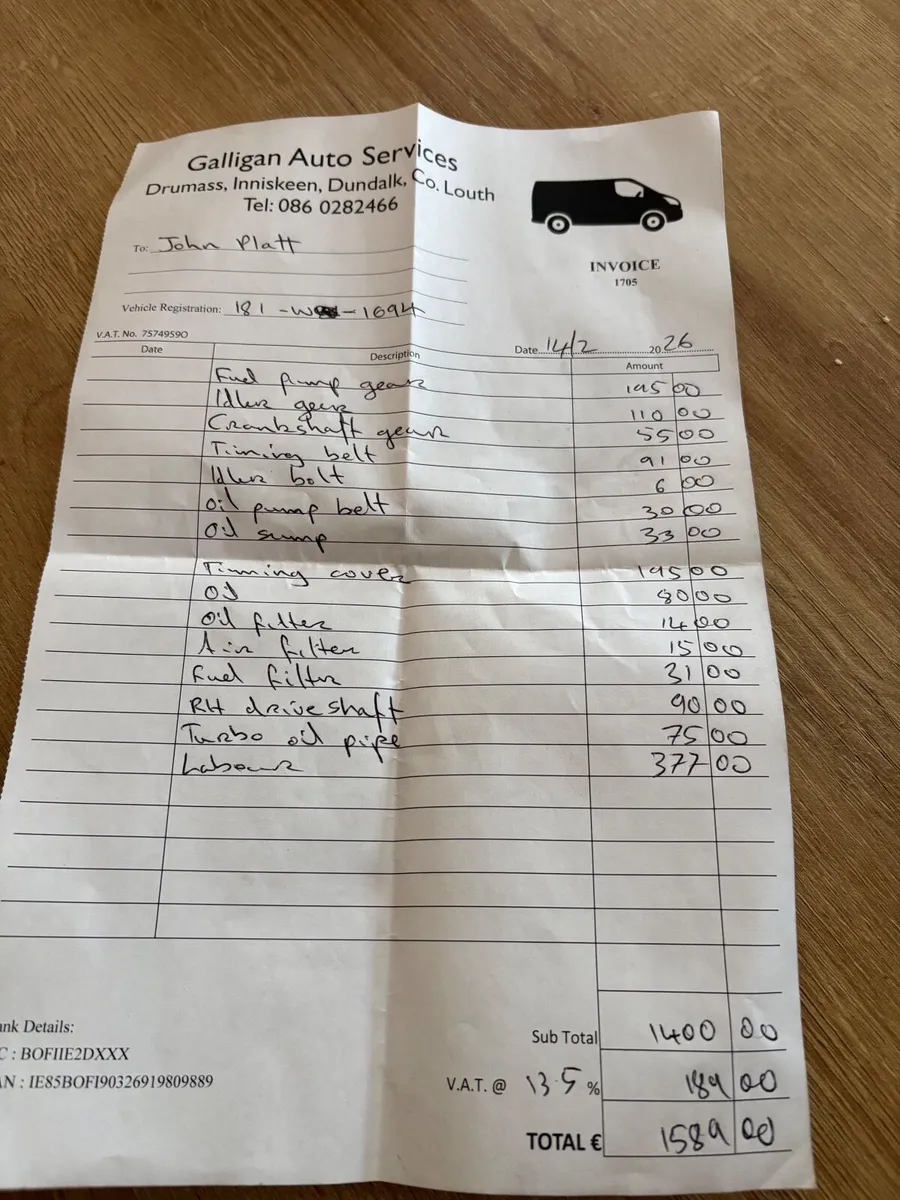 Galligan Auto Services
Drumass, Inniskeen, Dundalk, Co. Louth
Tel: 086 0282466
To: John Platt
INVOICE
1705
Vehicle Registration: 181 - W - 1694
V.A.T. No. 75749590
Date 14/2 2026
Date Description Amount
Fuel pump gear 195 00
Idler gear 110 00
Crankshaft gear 55 00
Timing belt 91 00
Idler bolt 6 00
Oil pump belt 30 00
Oil sump 33 00
Timing cover 195 00
Oil 80 00
Oil filter 14 00
Air filter 15 00
Fuel filter 31 00
RH driveshaft 90 00
Turbo oil pipe 75 00
Labour 377 00
Sub Total 1400 00
V.A.T. @ 13.5 % 189 00
TOTAL € 1589 00
Bank Details:
C : BOFIIE2DXXX
AN : IE85BOFI90326919809889